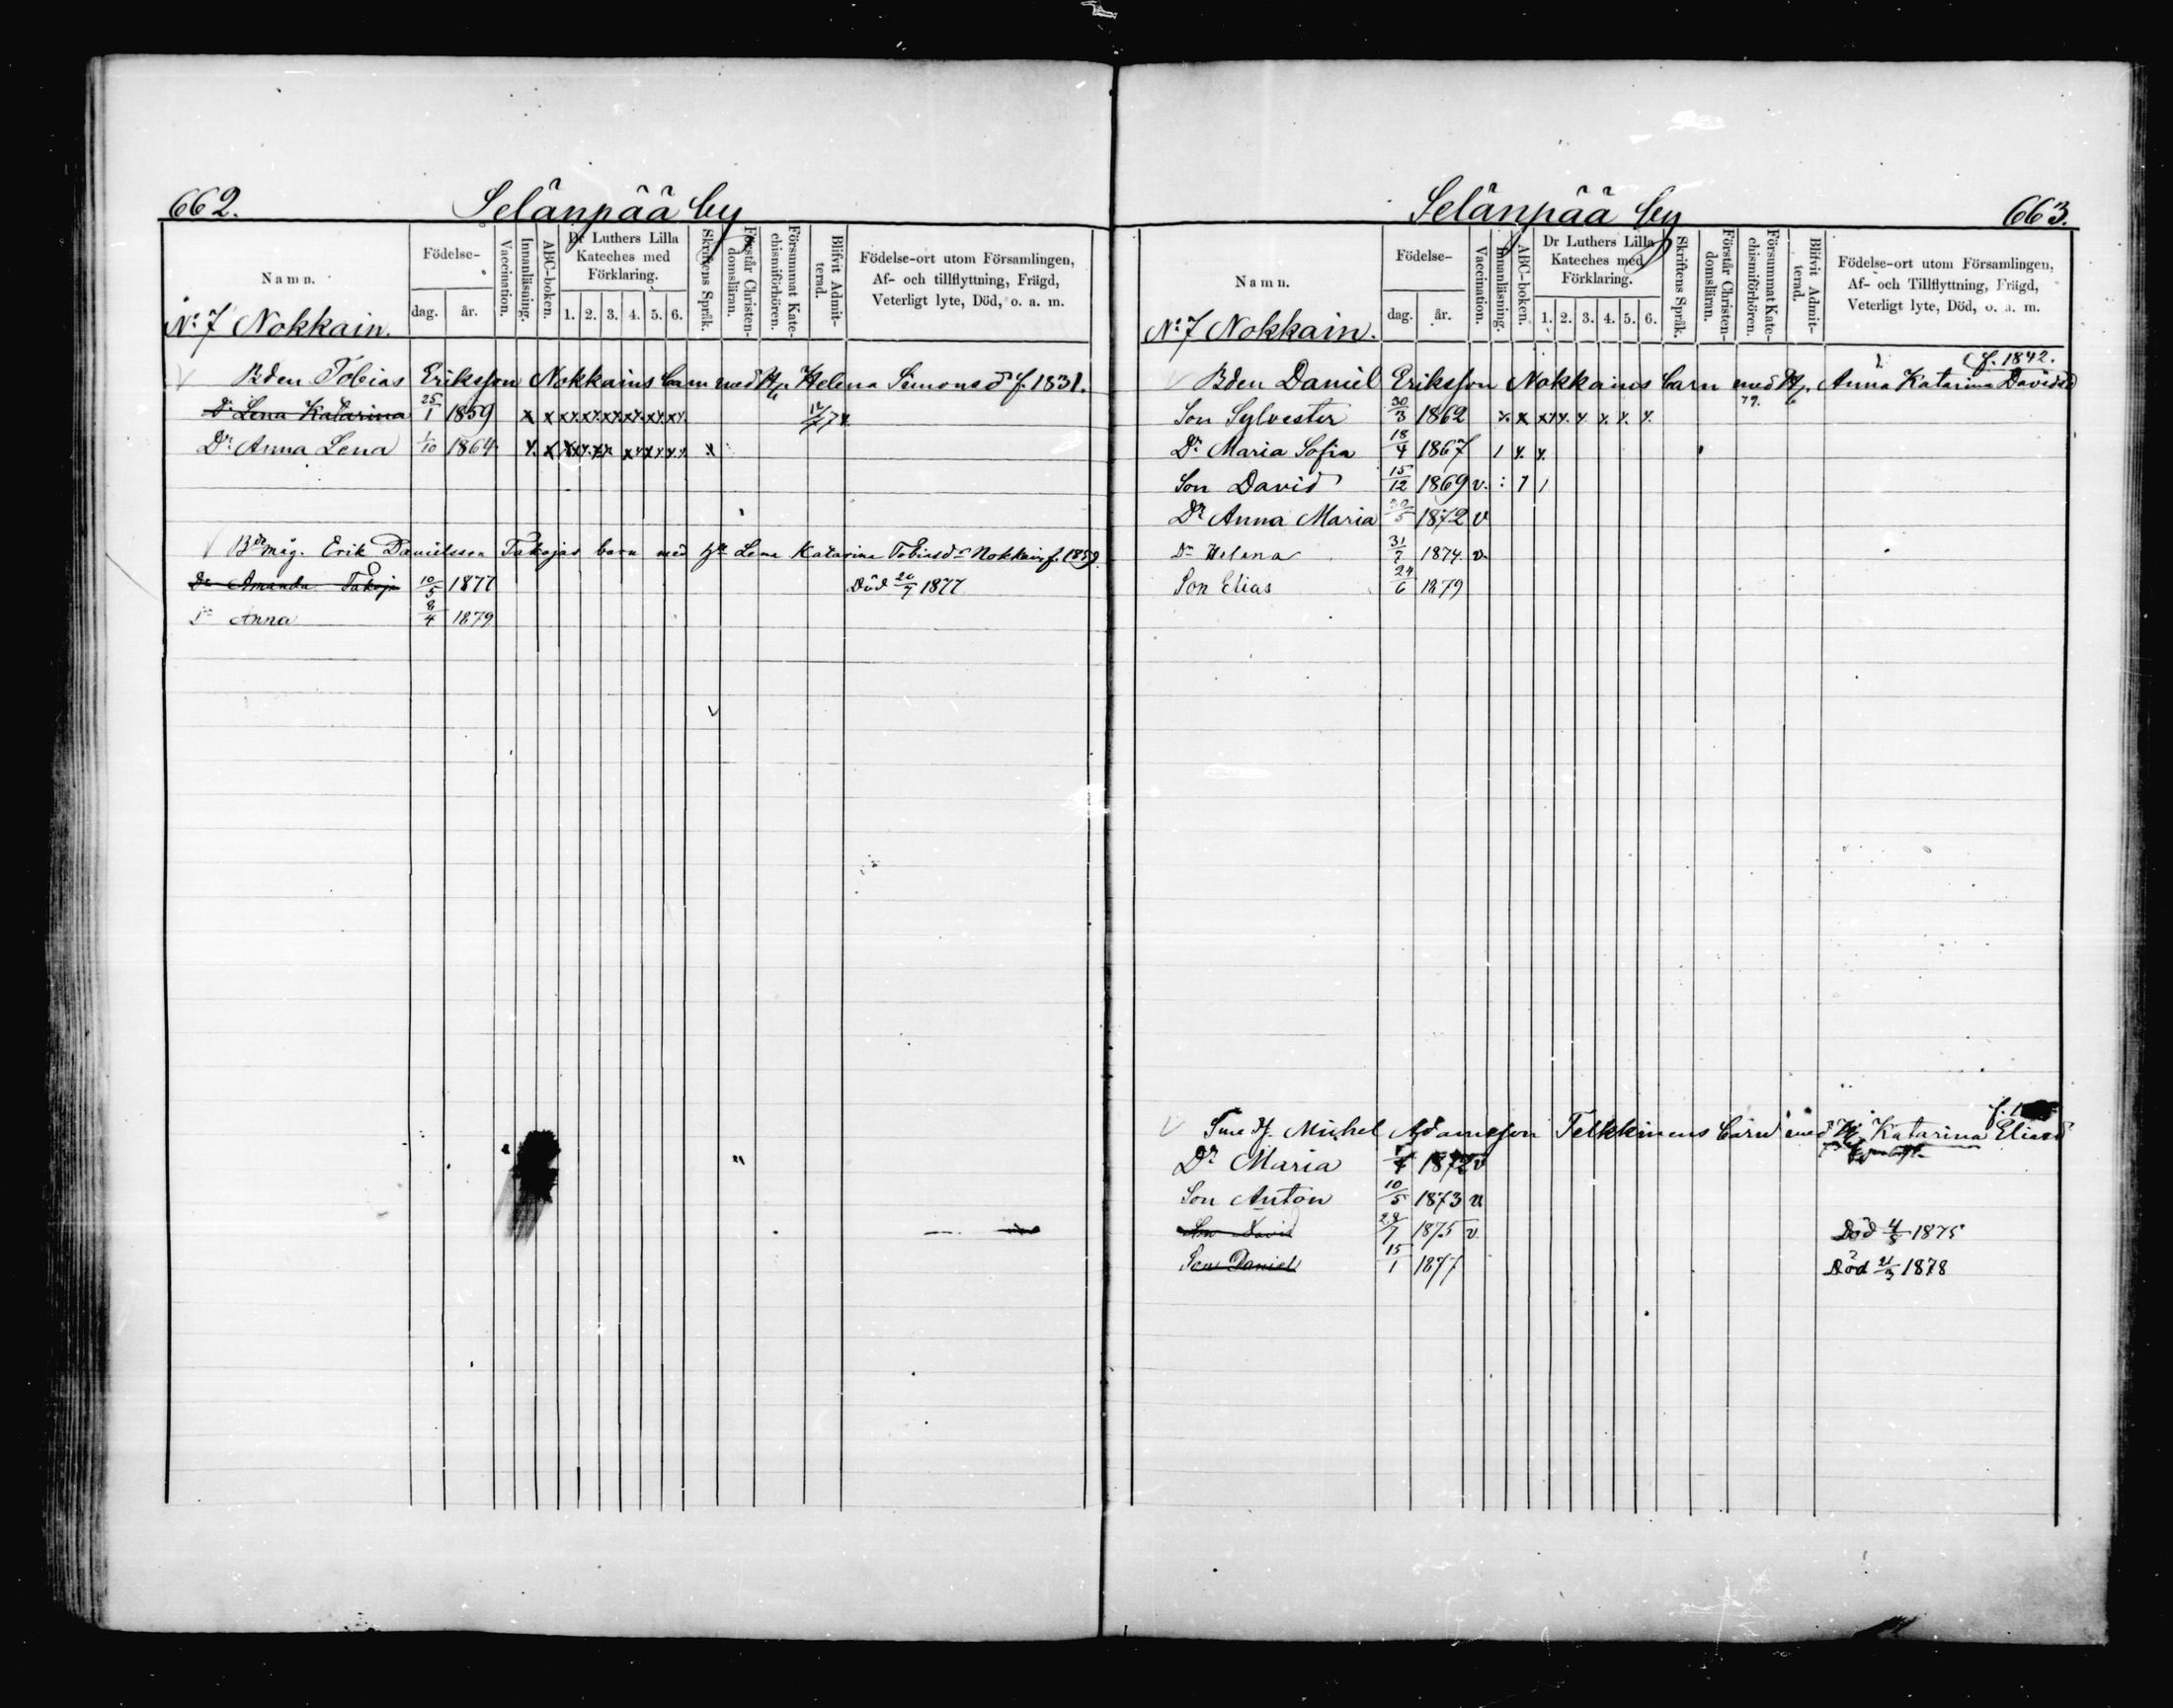 662.
Selänpää by
Namn.
Födelse-
dag.
år.
Vaccination.
Innanläsning.
ABC-boken.
Dr Luthers Lilla
Kateches med
Förklaring.
1. 2. 3. 4. 5. 6.
Skriftens Språk.
Förstår Christen-
domsläran.
Försummat Kate-
chismiförhören.
Blifvit Admit-
terad.
Födelse-ort utom Församlingen,
Af- och tillflyttning, Frägd,
Veterligt lyte, Död, o. a. m.
No 7 Nokkain.
Bden Tobias Eriksson Nokkains barn med Helena Simonsd f. 1831.
Dr Lena Katarina 25/1 1859 x x
Dr Anna Lena 1/10 1864
Bde måg. Erik Danielsson Takojas barn med Lena Katarina Tobiasdr Nokkain f. 1859.
Dr Amanda Takoja 10/5 1877 Död 20/7 1877
Dr Anna 8/4 1879
Selänpää by
663.
Namn.
Födelse-
dag.
år.
Vaccination.
Innanläsning.
ABC-boken.
Dr Luthers Lilla
Kateches med
Förklaring.
1. 2. 3. 4. 5. 6.
Skriftens Språk.
Förstår Christen-
domsläran.
Försummat Kate-
chismiförhören.
Blifvit Admit-
terad.
Födelse-ort utom Församlingen,
Af- och Tillflyttning, Frägd,
Veterligt lyte, Död, o. a. m.
No 7 Nokkain.
f. 1842.
Bden Daniel Eriksson Nokkains barn med Anna Katarina Davidsd
79.
Son Sylvester 30/3 1862
Dr Maria Sofia 18/4 1867
Son David 15/12 1869 v.
Dr Anna Maria 1872 v
Dr Helena 31/7 1874. v.
Son Elias 24/6 1879
Michel Adamsson Telkkinens barn med Katarina Eliasd
Dr Maria 1872 v
Son Anton 10/5 1873 v
Son David 28/7 1875 v Död 4/8 1875
Son Daniel 15/1 1877 Död 21/3 1878